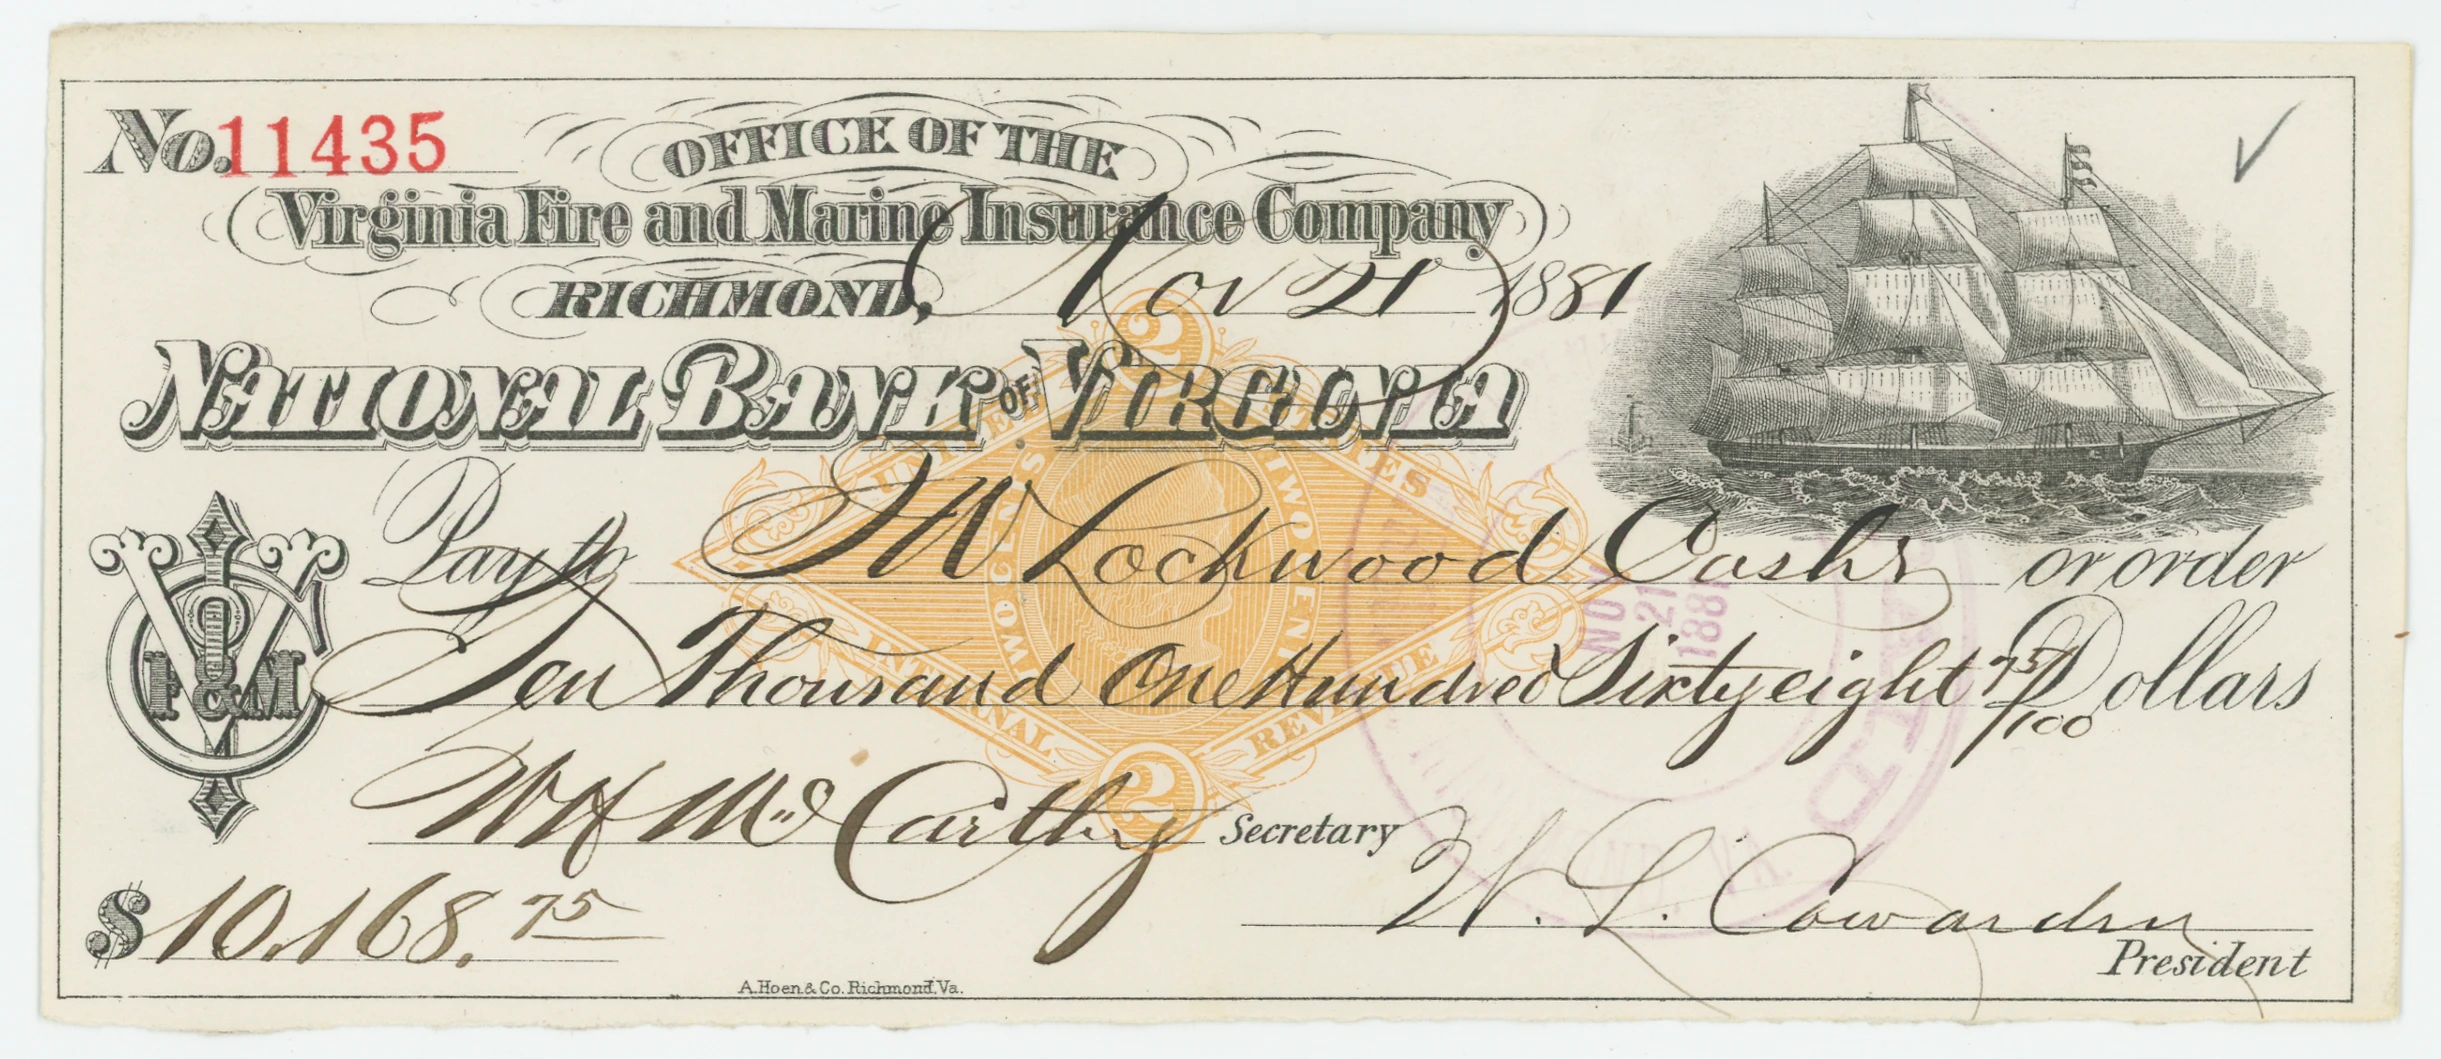 No. 11435
OFFICE OF THE
Virginia Fire and Marine Insurance Company
RICHMOND, Nov 21 1881
NATIONAL BANK OF VIRGINIA
Pay to Lockwood Cashr or order
Ten Thousand One Hundred Sixty eight 75/100 Dollars
V F&M C
W H McCarthy Secretary
W. L. Cowardin
President
$ 10,168.75
A. Hoen & Co. Richmond, Va.
2
UNITED STATES
TWO CENTS
TWO CENTS
INTERNAL REVENUE
2
NOV
21
1881
PAID